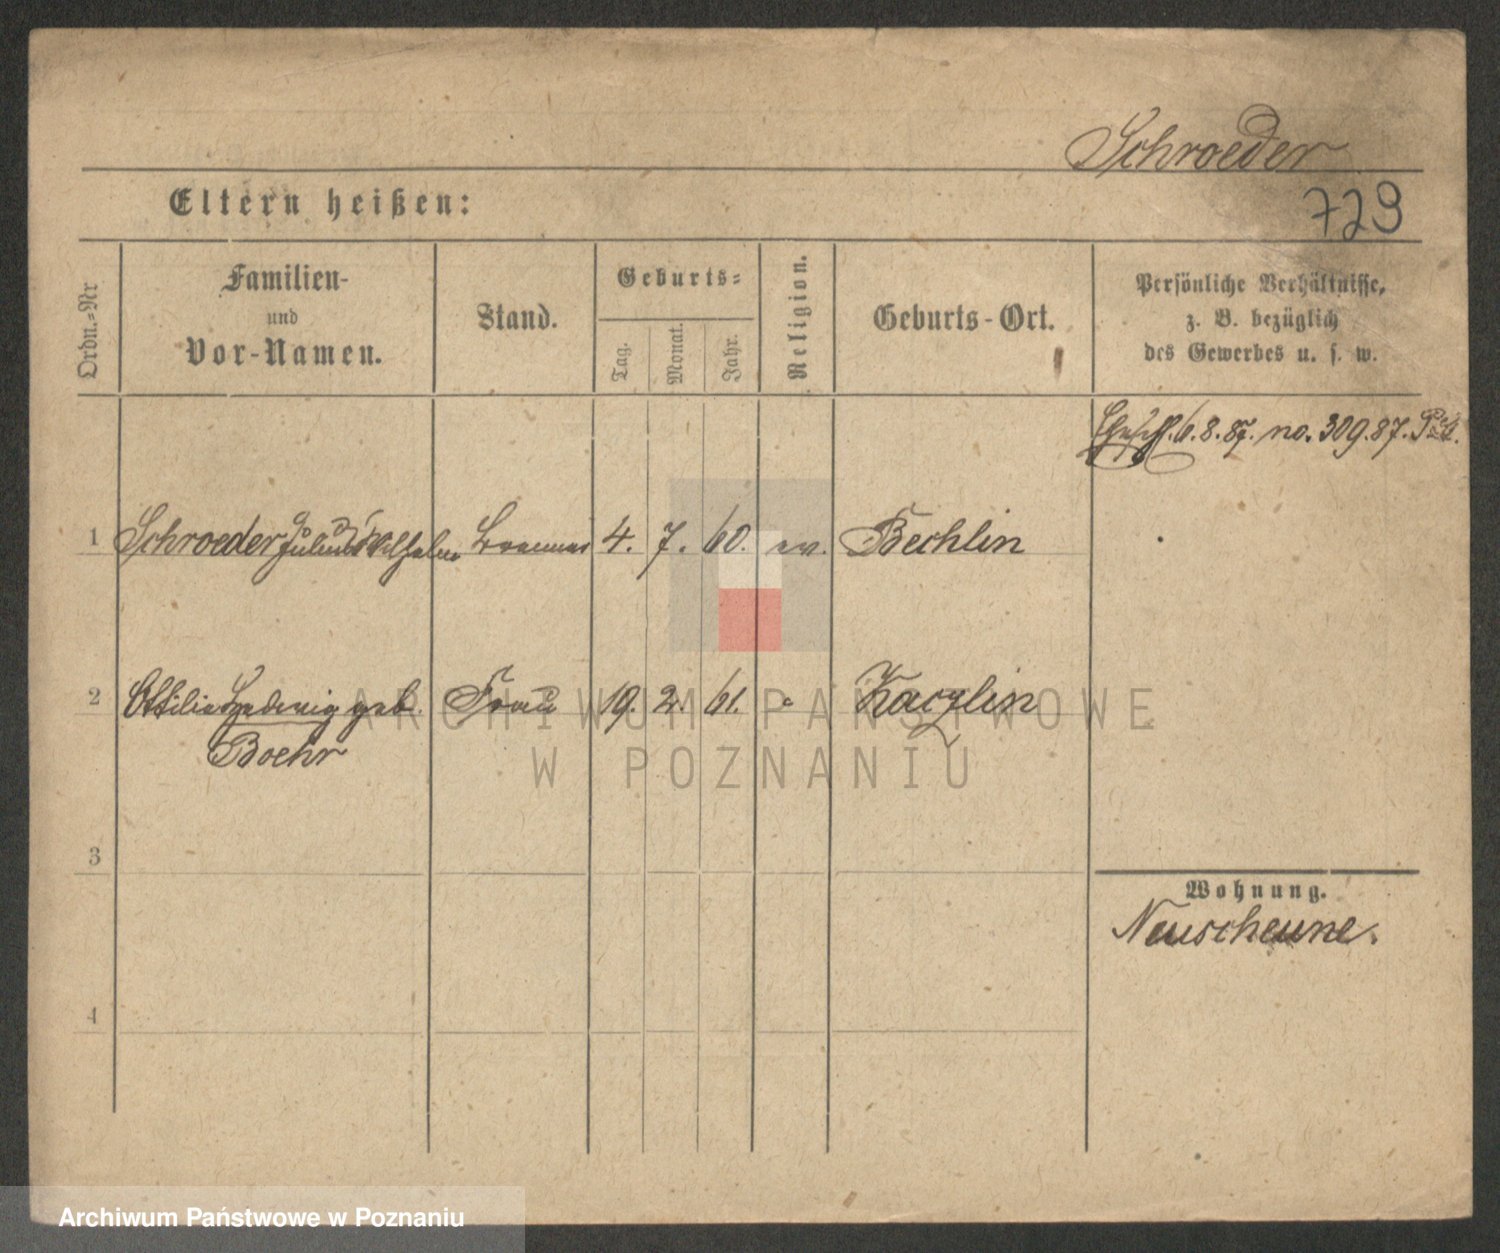 Schroeder
Eltern heißen:
729
Ordn.-Nr
Familien-
und
Vor-Namen.
Stand.
Geburts-
Tag.
Monat.
Jahr.
Religion.
Geburts-Ort.
Persönliche Verhältnisse,
z. B. bezüglich
des Gewerbes u. s. w.
6.8.87. no. 309.87.
1 Schroeder Julius Wilhelm 4. 7. 60. ev. Bechlin
2 Ottilie Hedwig geb. Frau 19. 2. 61. Kaczlin
Boehr
3
Wohnung.
Neuscheune.
4
ARCHIWUM PAŃSTWOWE
W POZNANIU
Archiwum Państwowe w Poznaniu